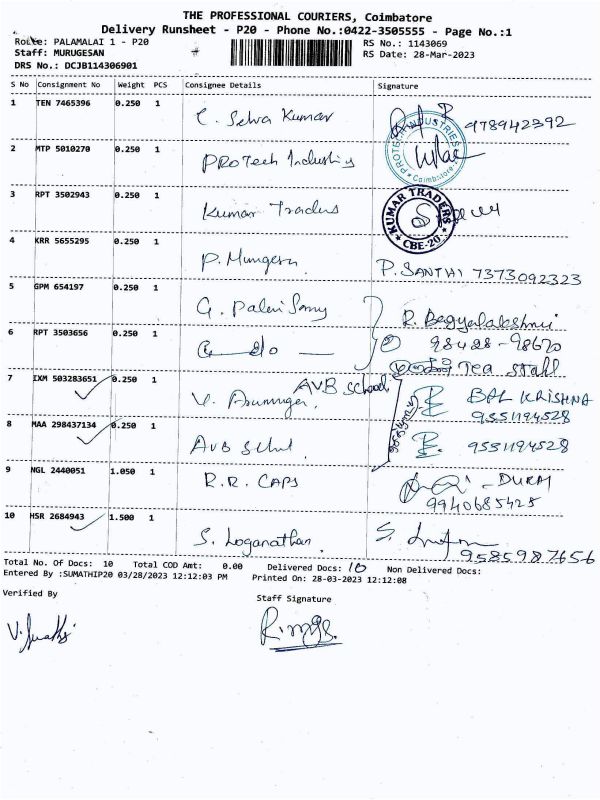 THE PROFESSIONAL COURIERS, Coimbatore
Delivery Runsheet - P20 - Phone No.:0422-3505555 - Page No.:1
Route: PALAMALAI 1 - P20
RS No.: 1143069
Staff: MURUGESAN
RS Date: 28-Mar-2023
DRS No.: DCJB114306901
S No Consignment No Weight PCS Consignee Details Signature
1 TEN 7465396 0.250 1 C. Selva Kumar 978942392
PROTECH INDUSTRIES * Coimbatore
2 MTP 5010270 0.250 1 PROTech Industris
3 RPT 3502943 0.250 1 Kumar Traders
KUMAR TRADERS * CBE-20 *
4 KRR 5655295 0.250 1 P. Murugesn P. SANTHI 7373092323
5 GPM 654197 0.250 1 G. Palani Samy R. Bagyalakshmi
98428-98670
6 RPT 3503656 0.250 1 do Tea Stall
7 IXM 503283651 0.250 1 V. Arumugam. AVB School BAL KRISHNA
9551194528
8 MAA 298437134 0.250 1 AVB Schol 9551194528
9 NGL 2440051 1.050 1 R.R. CAPS - DURAI
9940685425
10 HSR 2684943 1.500 1 S. Loganathan.
9585987656
Total No. Of Docs: 10 Total COD Amt: 0.00 Delivered Docs: 10 Non Delivered Docs:
Entered By :SUMATHIP20 03/28/2023 12:12:03 PM Printed On: 28-03-2023 12:12:08
Verified By
Staff Signature